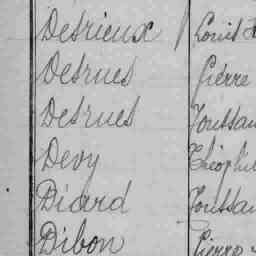 Desrieux Louis
Desrues Pierre
Desrues Toussai
Devy Théophil
Diard Toussai
Dibon Pierre